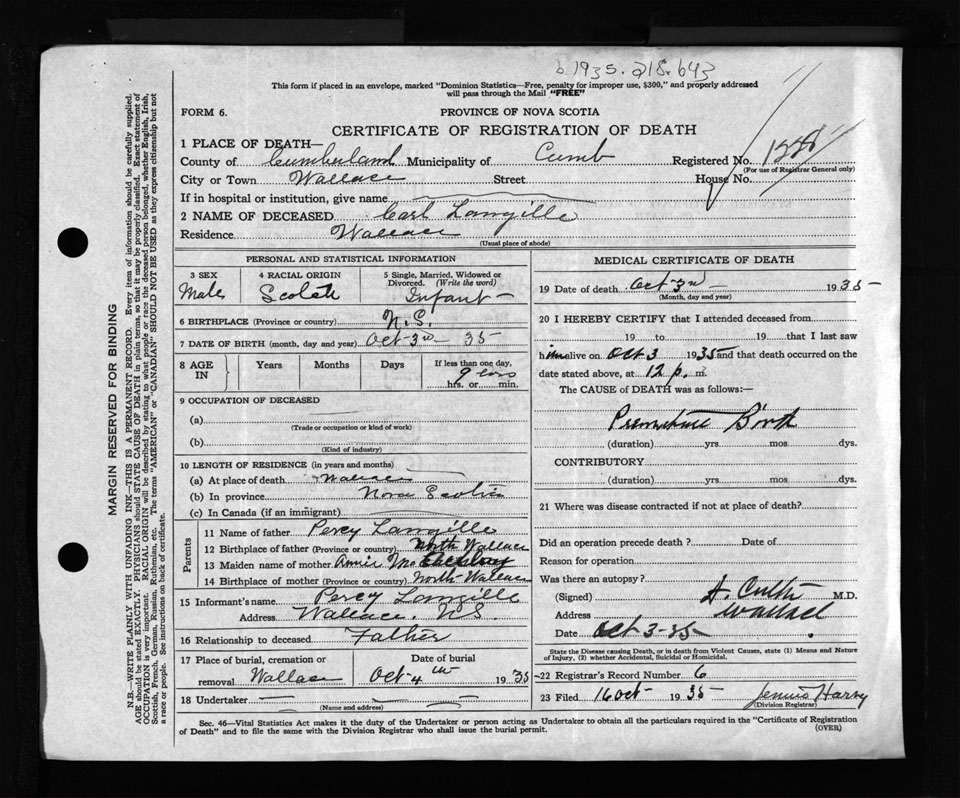 b.1935.218.643
This form if placed in an envelope, marked "Dominion Statistics—Free, penalty for improper use, $300," and properly addressed
will pass through the Mail "FREE"
FORM 6.
PROVINCE OF NOVA SCOTIA
CERTIFICATE OF REGISTRATION OF DEATH
1 PLACE OF DEATH—
County of Cumberland Municipality of Cumb Registered No.
(For use of Registrar General only)
City or Town Wallace Street House No.
If in hospital or institution, give name
2 NAME OF DECEASED Carl Langille
Residence Wallace
(Usual place of abode)
PERSONAL AND STATISTICAL INFORMATION
3 SEX 4 RACIAL ORIGIN 5 Single, Married, Widowed or
Divorced. (Write the word)
Male Scotch Infant
6 BIRTHPLACE (Province or country) N.S.
7 DATE OF BIRTH (month, day and year) Oct 3rd 35
8 AGE IN Years Months Days If less than one day,
9 hrs. or min.
9 OCCUPATION OF DECEASED
(a)
(Trade or occupation or kind of work)
(b)
(Kind of industry)
10 LENGTH OF RESIDENCE (in years and months)
(a) At place of death Wallace
(b) In province Nova Scotia
(c) In Canada (if an immigrant)
Parents
11 Name of father Percy Langille
12 Birthplace of father (Province or country) North Wallace
13 Maiden name of mother Annie
14 Birthplace of mother (Province or country) North Wallace
15 Informant's name Percy Langille
Address Wallace, N.S.
16 Relationship to deceased Father
17 Place of burial, cremation or Date of burial
removal Wallace Oct 4th 1935
18 Undertaker
(Name and address)
MEDICAL CERTIFICATE OF DEATH
19 Date of death Oct 3rd 1935
(Month, day and year)
20 I HEREBY CERTIFY that I attended deceased from
19 to 19 that I last saw
him alive on Oct 3 1935 and that death occurred on the
date stated above, at 12 p. m.
The CAUSE of DEATH was as follows:—
Premature Birth
(duration) yrs mos dys.
CONTRIBUTORY
(duration) yrs mos dys.
21 Where was disease contracted if not at place of death?
Did an operation precede death ? Date of
Reason for operation
Was there an autopsy?
(Signed) M.D.
Address Wallace
Date Oct 3-35
State the Disease causing Death, or in death from Violent Causes, state (1) Means and Nature
of Injury, (2) whether Accidental, Suicidal or Homicidal.
22 Registrar's Record Number 6
23 Filed 16 Oct 1935 Harvy
(Division Registrar)
Sec. 46—Vital Statistics Act makes it the duty of the Undertaker or person acting as Undertaker to obtain all the particulars required in the "Certificate of Registration
of Death" and to file the same with the Division Registrar who shall issue the burial permit.
(OVER)
MARGIN RESERVED FOR BINDING
N.B.—WRITE PLAINLY WITH UNFADING INK—THIS IS A PERMANENT RECORD. Every item of information should be carefully supplied.
AGE should be stated EXACTLY. PHYSICIANS should STATE CAUSE OF DEATH in plain terms, so that it may be properly classified. Exact statement of
OCCUPATION is very important. RACIAL ORIGIN will be described by stating to what people or race the deceased person belonged, whether English, Irish,
Scottish, French, German, Russian, Ruthenian, etc. The terms "AMERICAN" or "CANADIAN" SHOULD NOT BE USED as they express citizenship but not
a race or people. See instructions on back of certificate.